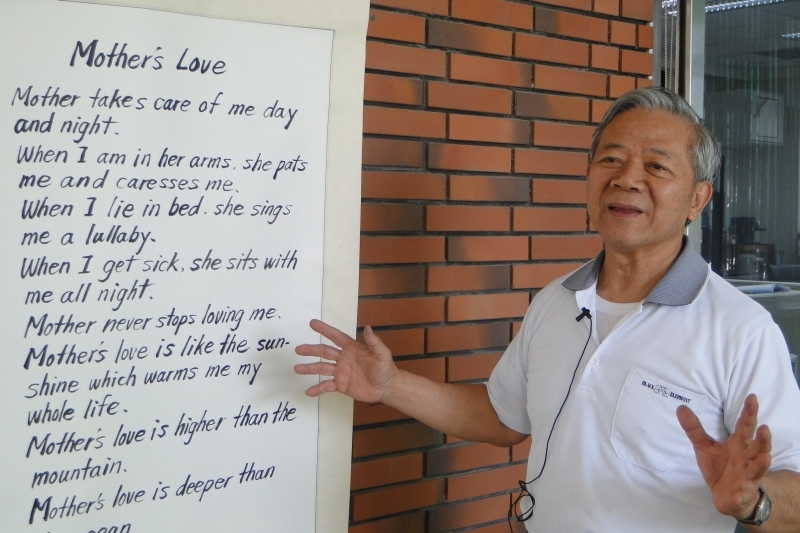 Mother's Love
Mother takes care of me day
and night.
When I am in her arms, she pats
me and caresses me.
When I lie in bed, she sings
me a lullaby.
When I get sick, she sits with
me all night.
Mother never stops loving me.
Mother's love is like the sun-
shine which warms me my
whole life.
Mother's love is higher than the
mountain.
Mother's love is deeper than
BLACK ELEPHANT